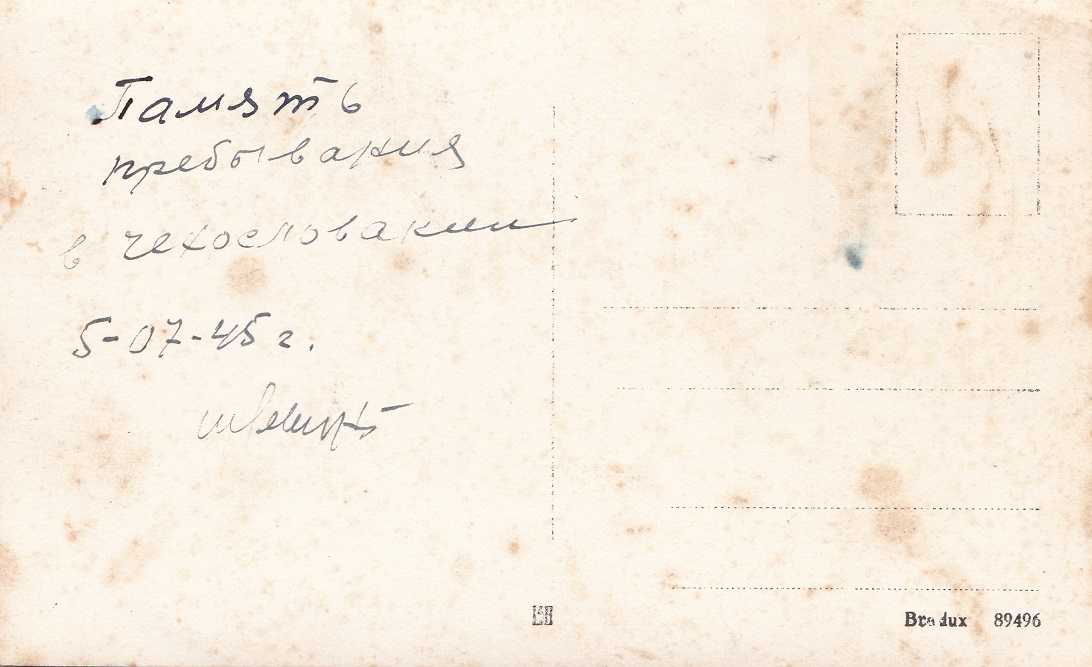 Память
пребывания
в чехословакии
5-07-45 г.
Bradux 89496